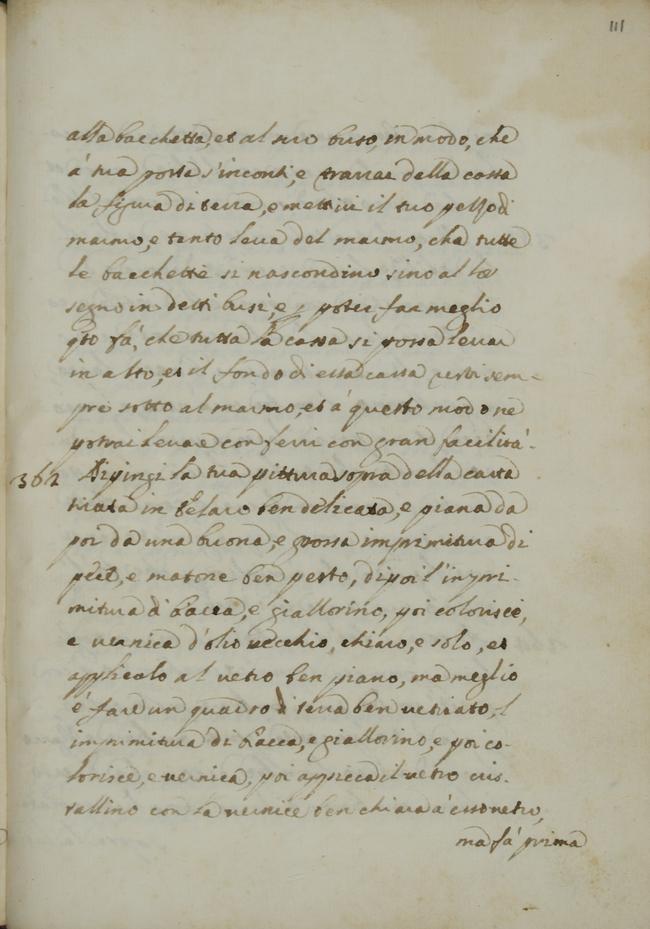 111
alla bacchetta, et al suo buso, in modo, che
á tua posta s'incontri, e trarrai della cassa
la figura di terra, e mettivi il tuo pezzo di
marmo, e tanto leva del marmo, che tutte
le bacchette si nascondino sino al lor
segno in detti busi, e p poter far meglio
qto fá, che tutta la cassa si possa levar
in alto, et il fondo di essa cassa resti sem-
pre sotto al marmo, et á questo modo ne
potrai levare con ferri con gran facilitá.
362 Dipingi la tua pittura sopra della carta
tirata in telaro ben delicata, e piana da
poi da una buona, e grossa imprimitura di
pece, e matone ben pesto, di poi l'inpri-
mitura di bacca, e giallorino, poi colorisce,
e vernica d'olio vecchio, chiaro, e solo, et
applicalo al vetro ben piano, ma meglio
é fare un quadro di terra ben vetriato, l
imprimitura di bacca, e giallorino, e poi co-
lorisce, e vernica, poi appicca il vetro cris-
tallino con la vernice ben chiara á esso vetro,
ma fá prima